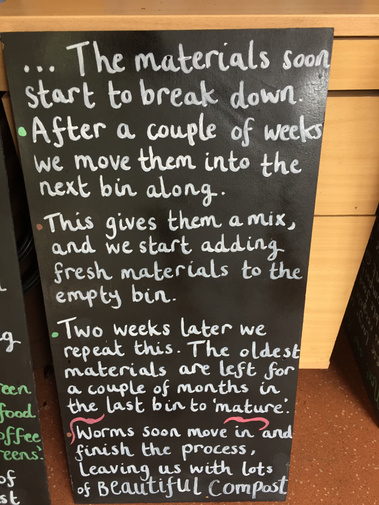 ... The materials soon
start to break down.
• After a couple of weeks
we move them into the
next bin along.
• This gives them a mix,
and we start adding
fresh materials to the
empty bin.
• Two weeks later we
repeat this. The oldest
materials are left for
a couple of months in
the last bin to 'mature'.
• Worms soon move in and
finish the process,
leaving us with lots
of Beautiful Compost